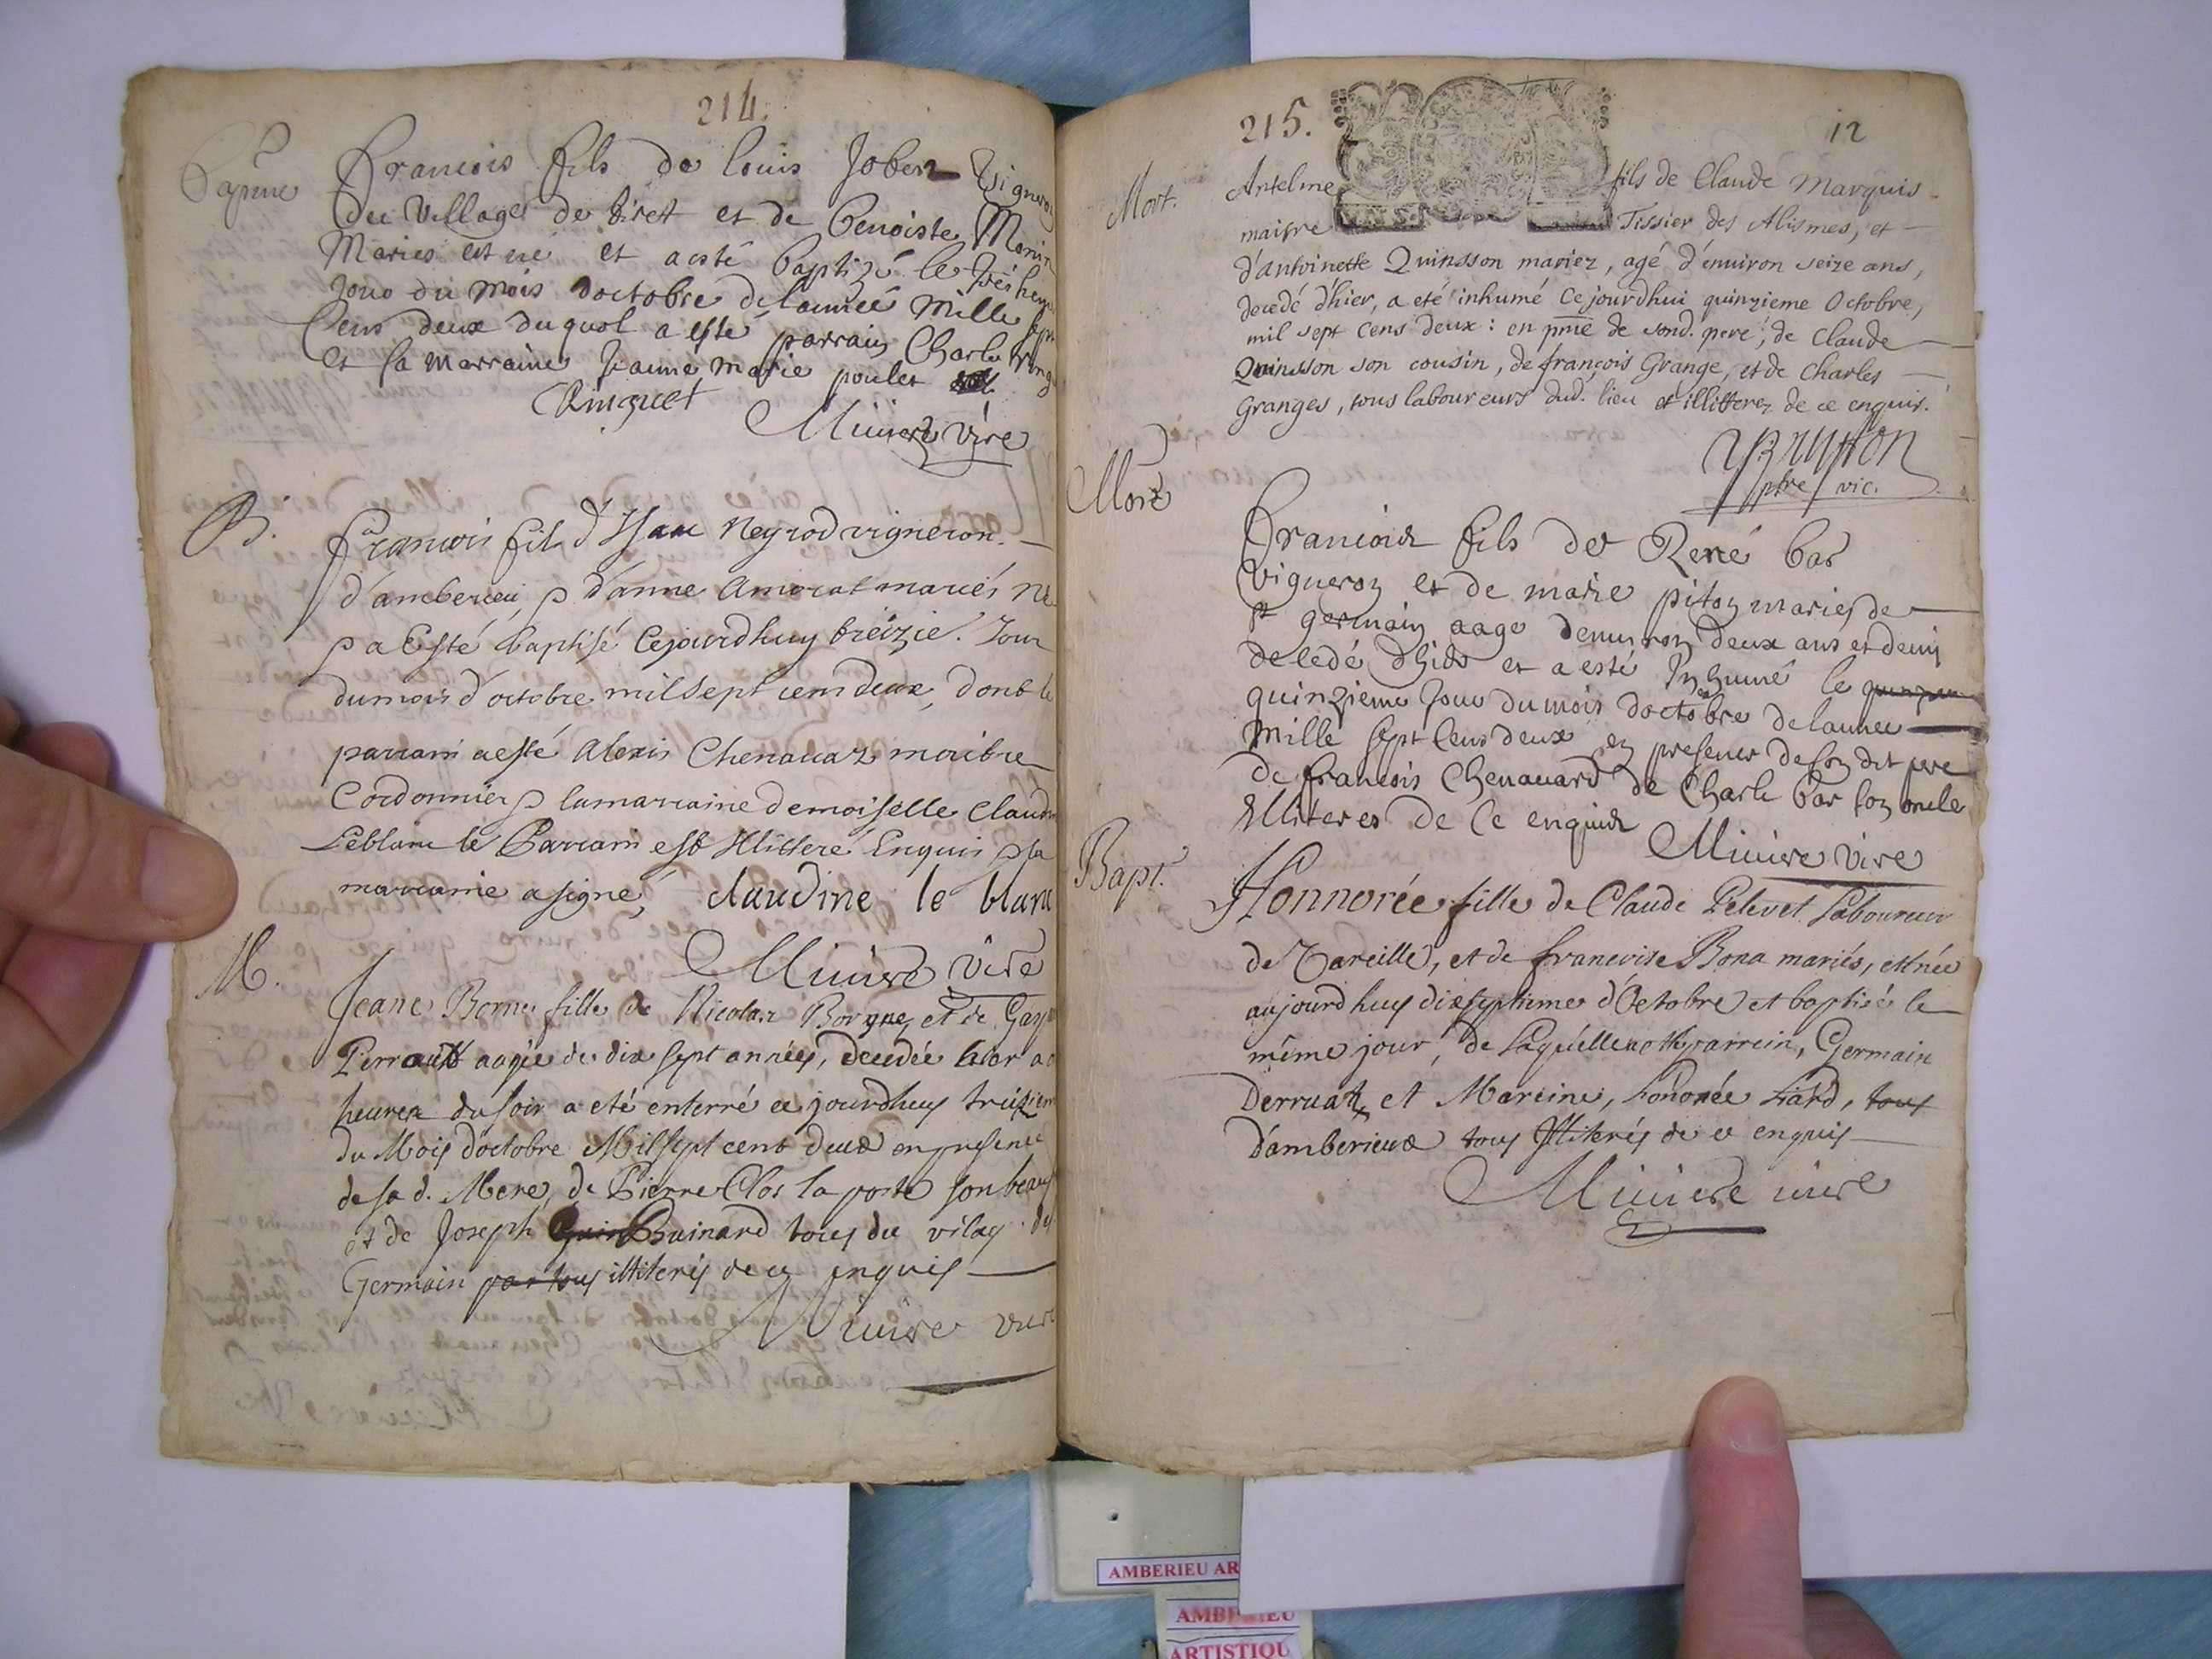 214.
Bapme
francois fils de louis Jobert Vigneron
du Village de tiret et de Benoiste Monin
Maries est né et a esté baptizé le treiziem
Jour du mois doctobre de lannéé Mille sept
Cens deux duquel a esté parrain Charle
et sa marraine Jeanne marie poulet
Chuzuet
Miniere vire
B.
francois fils d'Isaac Neyrod vigneron
d'amberieu & d'anne Amorat mariés né
& a Esté baptisé Cejourdhuy treizie. Jour
du mois d'octobre mil sept cens deux, dont le
parrain a esté Alexis Chenavaz maitre
Cordonnier & la marraine demoiselle Claudine
Leblanc le Parrain est Illitteré Enquis & la
marraine a signé, claudine le blanc
Miniere vire
M.
Jeane Borne fille de Nicolas Borgne et de
Perrault aagée de dix sept années, decedée hier a
heures du soir a eté enterré ce jourdhuy treiziem
du Mois d'octobre Mil sept cent deux en presence
de sa d. Mere, de Pierre Clos la poste son beau
et de Joseph Buinard tous du vilag de
Germain par tous illiterés de ce enquis
Miniere vire
215.
12
Mort.
Antelme fils de Claude Marquis
maitre Tissier des Alismes, et
d'antoinette Quinsson mariez, agé d'environ seize ans,
decedé d'hier, a eté inhumé Cejourdhui quinzieme Octobre,
mil sept cens deux : en pnce de sond. pere, de Claude
Quinsson son cousin, de françois Grange, et de Charles
Granges, tous laboureurs dud. lieu et illitterez de ce enquis.
Brunon
pbre vic.
Mort
francois fils de René bar
Vigneron et de marie piton maries de
st germain aage denviron deux ans et demi
decedé dhier et a esté Inhumé le quinzie
quinzieme Jour du mois doctobre delannee
Mille sept Cens deux en presence de son dit pere
de francois Chenavard de Charle bar son oncle
Illiteres de Ce enquis
Miniere vire
Bapt.
Honnorée fille de Claude Pelevet Laboureur
de Vareille, et de francoise Bona mariés, est née
aujourd huy dix septieme d'Octobre et baptisée le
même jour, de laquelle a eté parrein, Germain
Derruaz, et Mareine, honorée Liard, tous
d'amberieux tous Illiterés de ce enquis
Miniere vire
AMBERIEU AR
AMBERIEU
ARTISTIQU